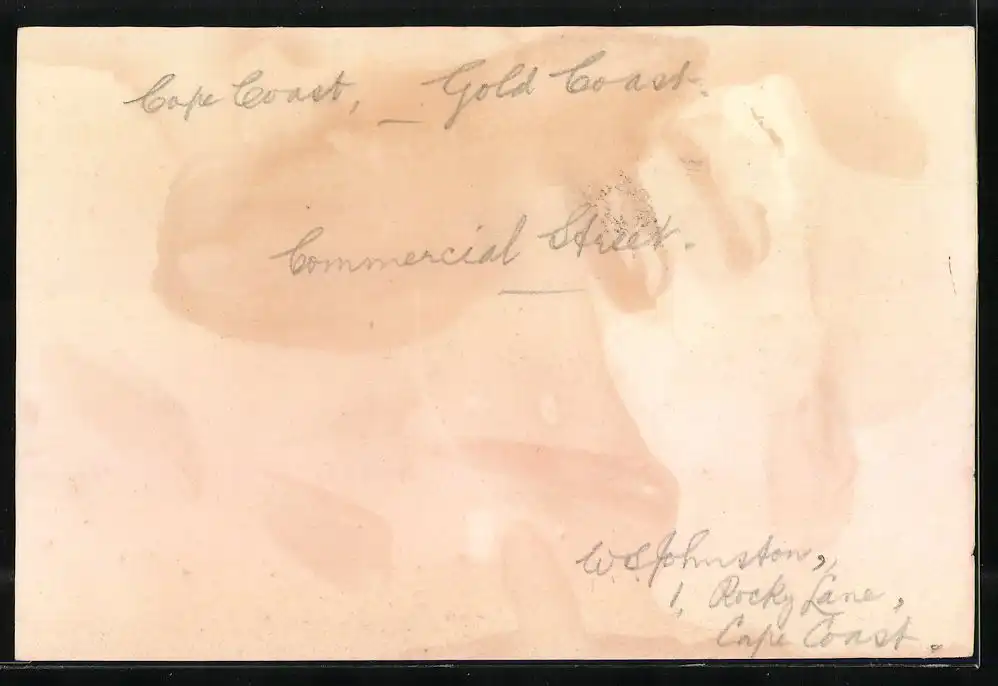 Cape Coast, — Gold Coast.
Commercial Street.
W S Johnston,
1, Rocky Lane,
Cape Coast.